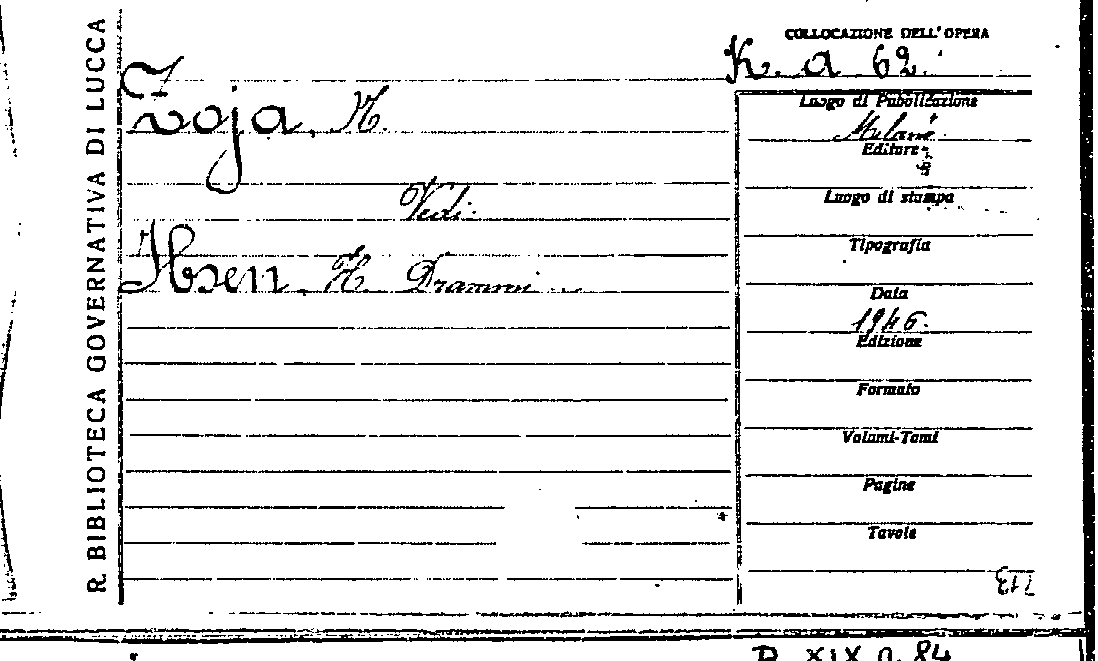 R. BIBLIOTECA GOVERNATIVA DI LUCCA
COLLOCAZIONE DELL' OPERA
K. a 62.
Zoja, N.
Vedi:
Ibsen. H. Drammi
Luogo di Pubblicazione
Milano
Editore
Luogo di stampa
Tipografia
Data
1946.
Edizione
Formato
Volumi-Tomi
Pagine
Tavole
713
XIX a. 84